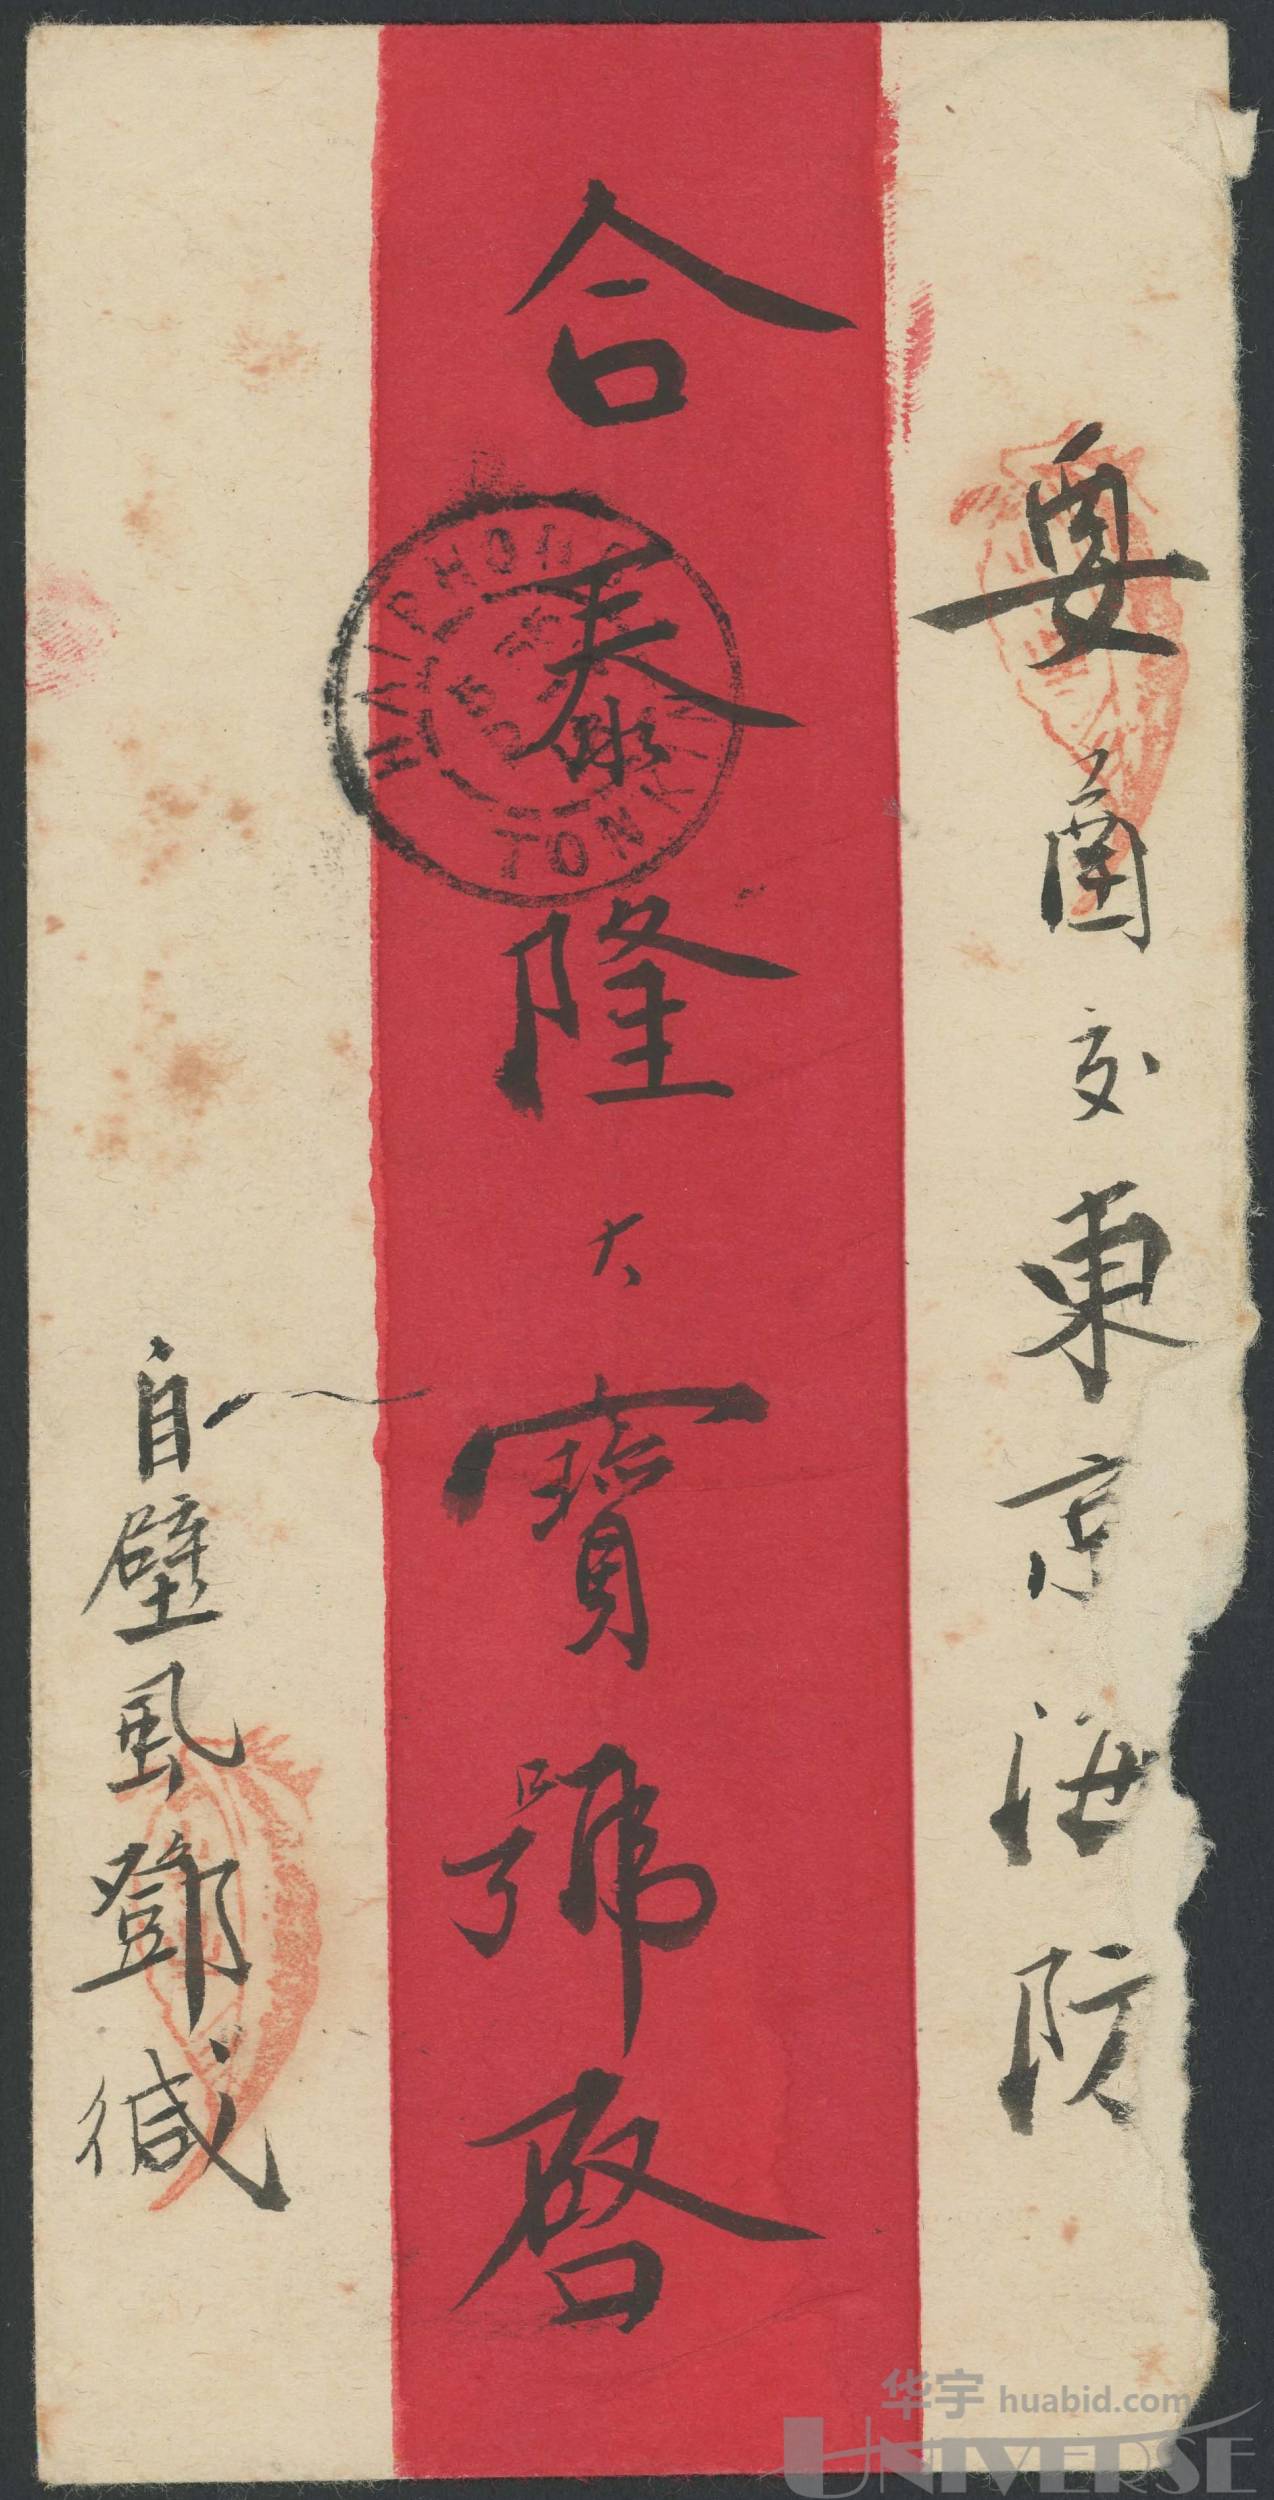 要函交東京海防
合泰隆大寶號啓
自壁虱鄧緘
HAIPHONG
TONKIN
华宇 huabid.com
UNIVERSE